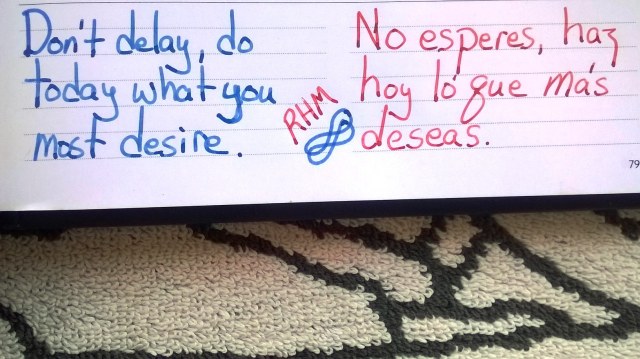 Don't delay, do
today what you
most desire.
No esperes, haz
hoy lo que más
deseas.
RHM
79